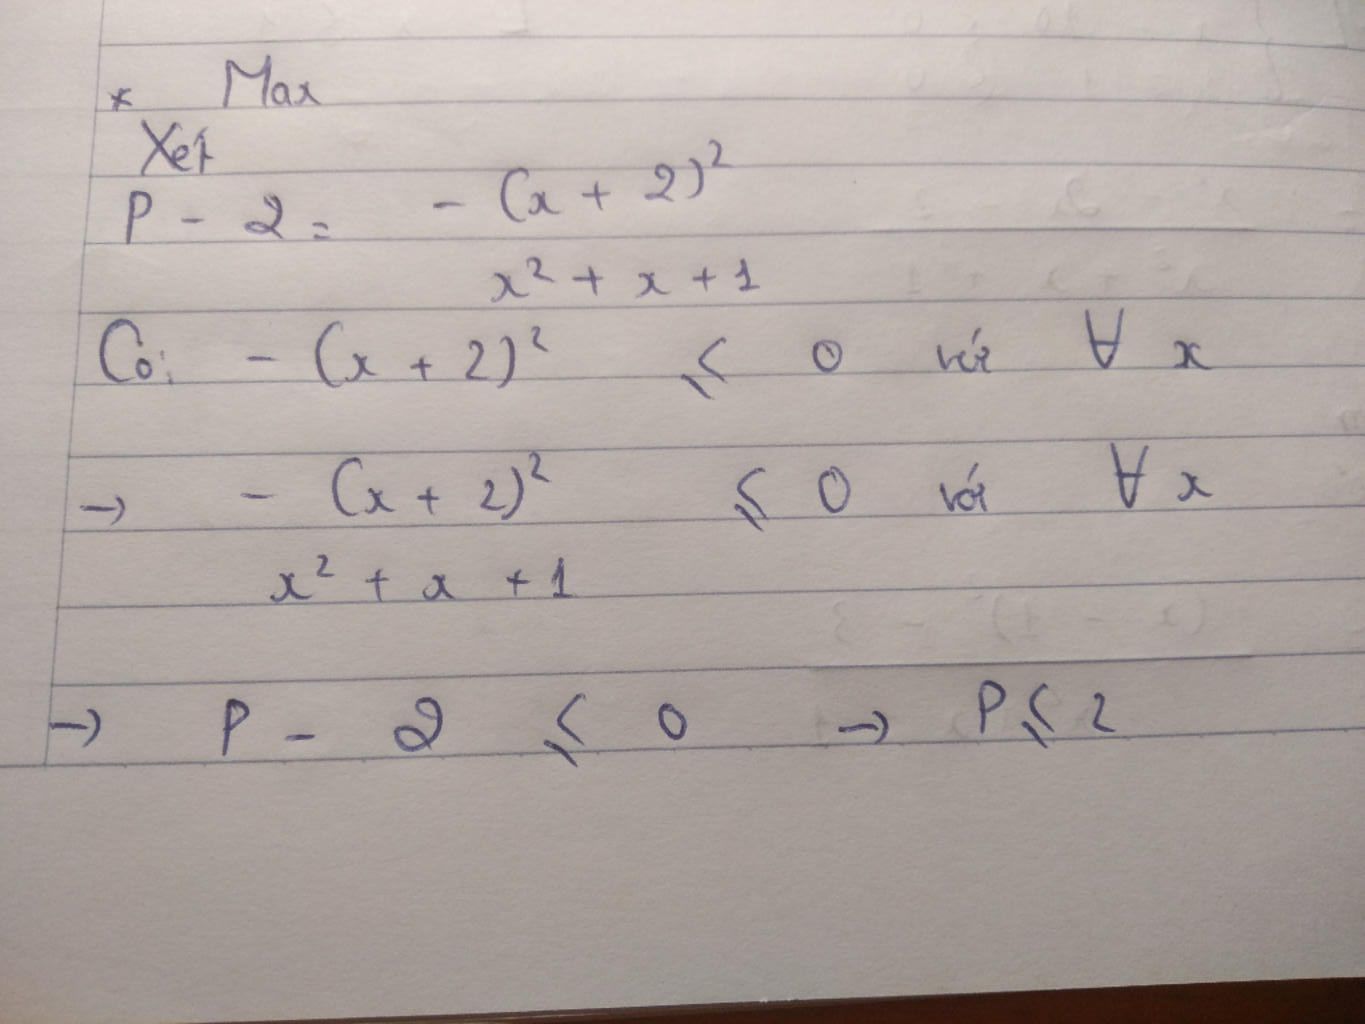 * Max
Xét
P - 2 = - (x + 2)²
x² + x + 1
Có: - (x + 2)² ≤ 0 với ∀ x
→ - (x + 2)² ≤ 0 với ∀ x
x² + x + 1
→ P - 2 ≤ 0 → P ≤ 2